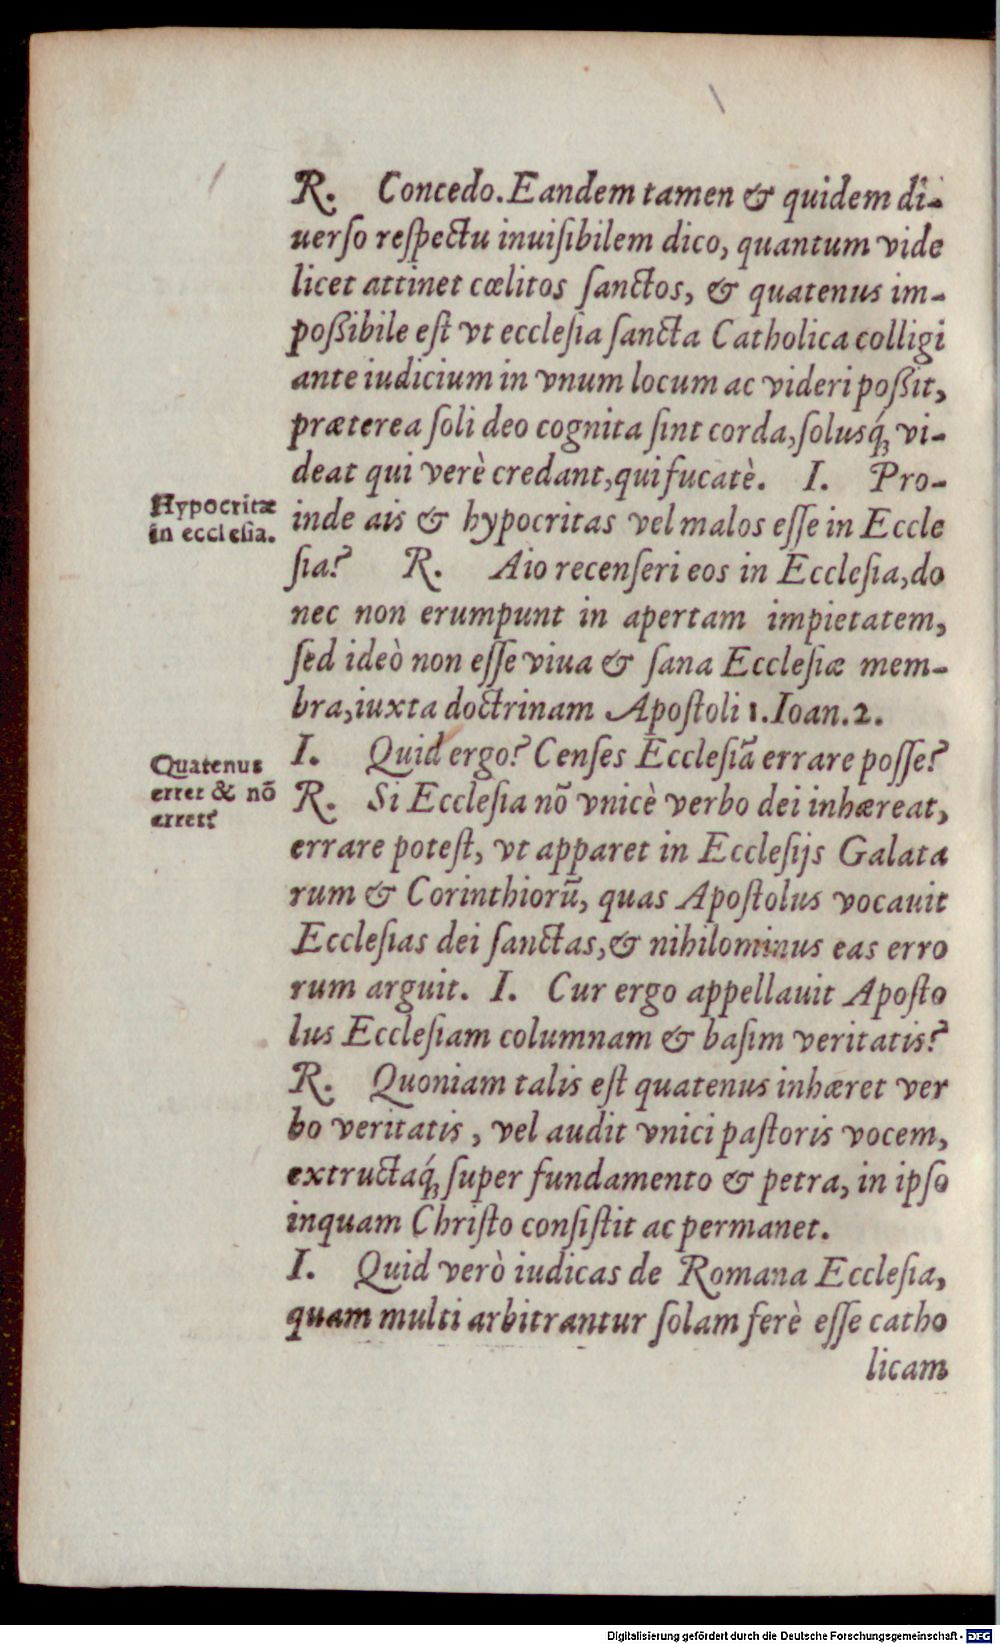 R. Concedo. Eandem tamen & quidem di-
uerſo reſpectu inuiſibilem dico, quantum vide
licet attinet cœlitos ſanctos, & quatenus im-
poßibile eſt vt eccleſia ſancta Catholica colligi
ante iudicium in vnum locum ac videri poßit,
præterea ſoli deo cognita ſint corda, ſolusq́; vi-
deat qui verè credant, qui fucatè. I. Pro-
Hypocritæ
in eccleſia.
inde ais & hypocritas vel malos eſſe in Eccle
ſia? R. Aio recenſeri eos in Eccleſia, do
nec non erumpunt in apertam impietatem,
ſed ideò non eſſe viua & ſana Eccleſiæ mem-
bra, iuxta doctrinam Apoſtoli 1. Ioan. 2.
I. Quid ergo? Cenſes Eccleſiã errare poſſe?
Quatenus
erret & nõ
erret?
R. Si Eccleſia nõ vnicè verbo dei inhæreat,
errare poteſt, vt apparet in Eccleſijs Galata
rum & Corinthiorũ, quas Apoſtolus vocauit
Eccleſias dei ſanctas, & nihilominus eas erro
rum arguit. I. Cur ergo appellauit Apoſto
lus Eccleſiam columnam & baſim veritatis?
R. Quoniam talis eſt quatenus inhæret ver
bo veritatis, vel audit vnici paſtoris vocem,
extructaq́; ſuper fundamento & petra, in ipſo
inquam Chriſto conſiſtit ac permanet.
I. Quid verò iudicas de Romana Eccleſia,
quam multi arbitrantur ſolam ferè eſſe catho
licam
Digitalisierung gefördert durch die Deutsche Forschungsgemeinschaft - DFG